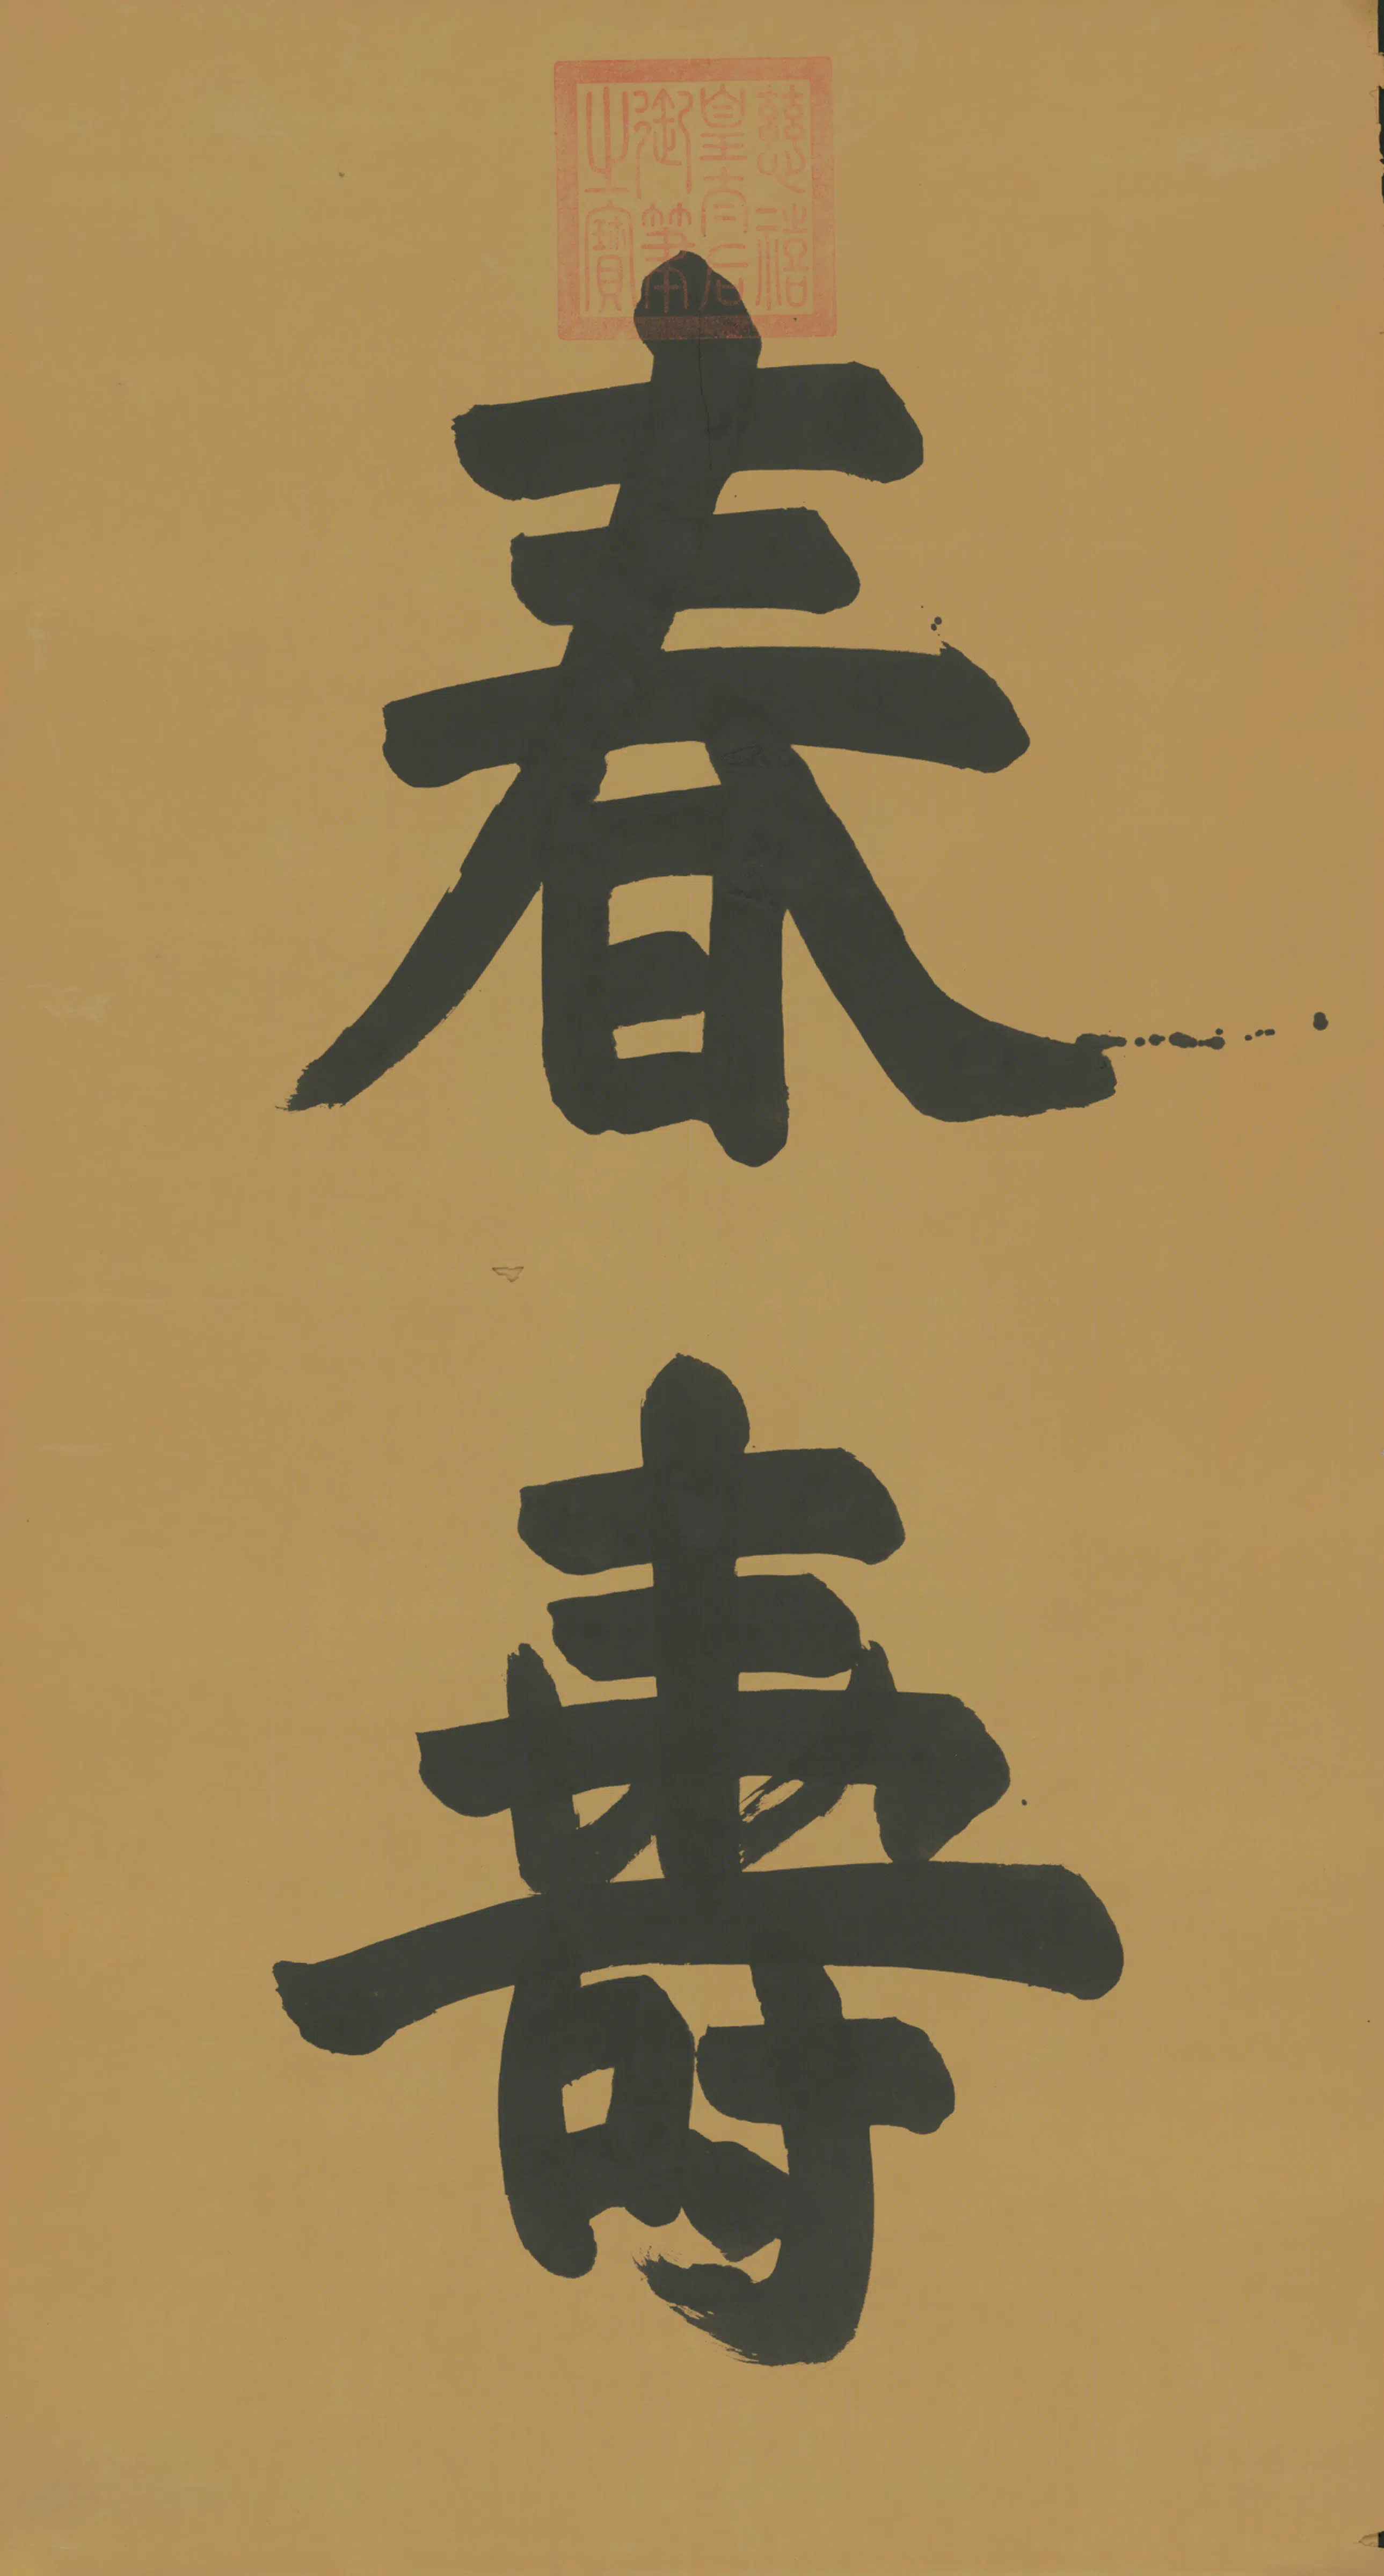 慈禧
皇太后
御筆
之寶
春壽